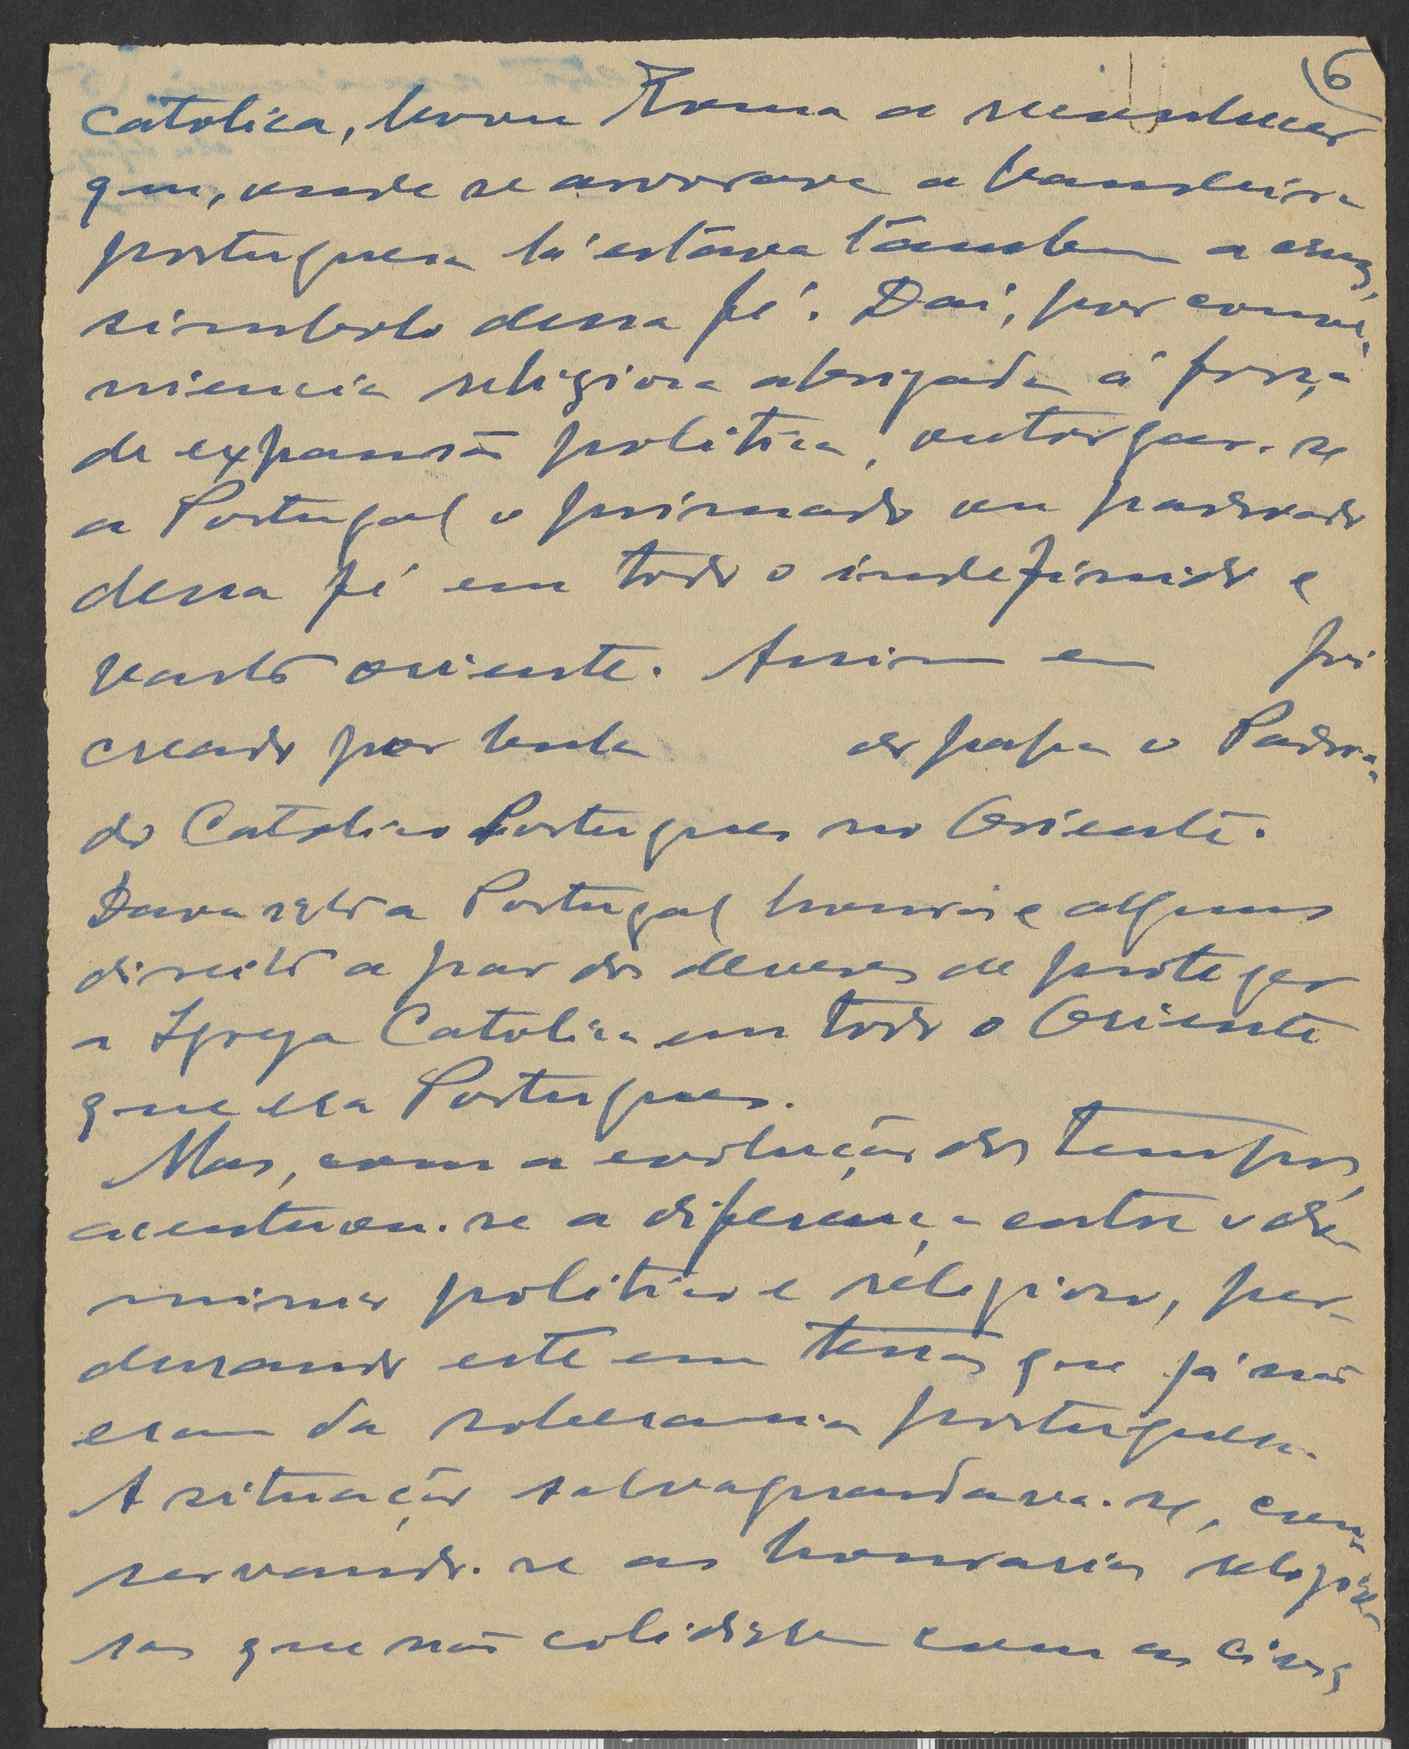 6
catolica, levou Roma a reconhecer
que, onde se arvorava a bandeira
portuguesa lá estava tambem a cruz,
simbolo dessa fé. Daí, por conve-
niencia religiosa abrigada á força
de expansão politica, outorgar-se
a Portugal o primado ou padroado
dessa fé em todo o indefinido e
vasto oriente. Assim em foi
creado por bula do papa o Padroa-
do Catolico Portugues no Oriente.
Dava isto a Portugal honras e alguns
direitos a par dos deveres de proteger
a Igreja Catolica em todo o Oriente
que era Portugues.
Mas, com a evolução dos tempos,
acentuou-se a diferença entre o do-
minio politico e religioso, per-
durando este em terras que já não
eram da soberania portuguesa.
A situação salvaguardava-se, con-
servando-se as honrarias religio-
sas que não colidissem com as civis